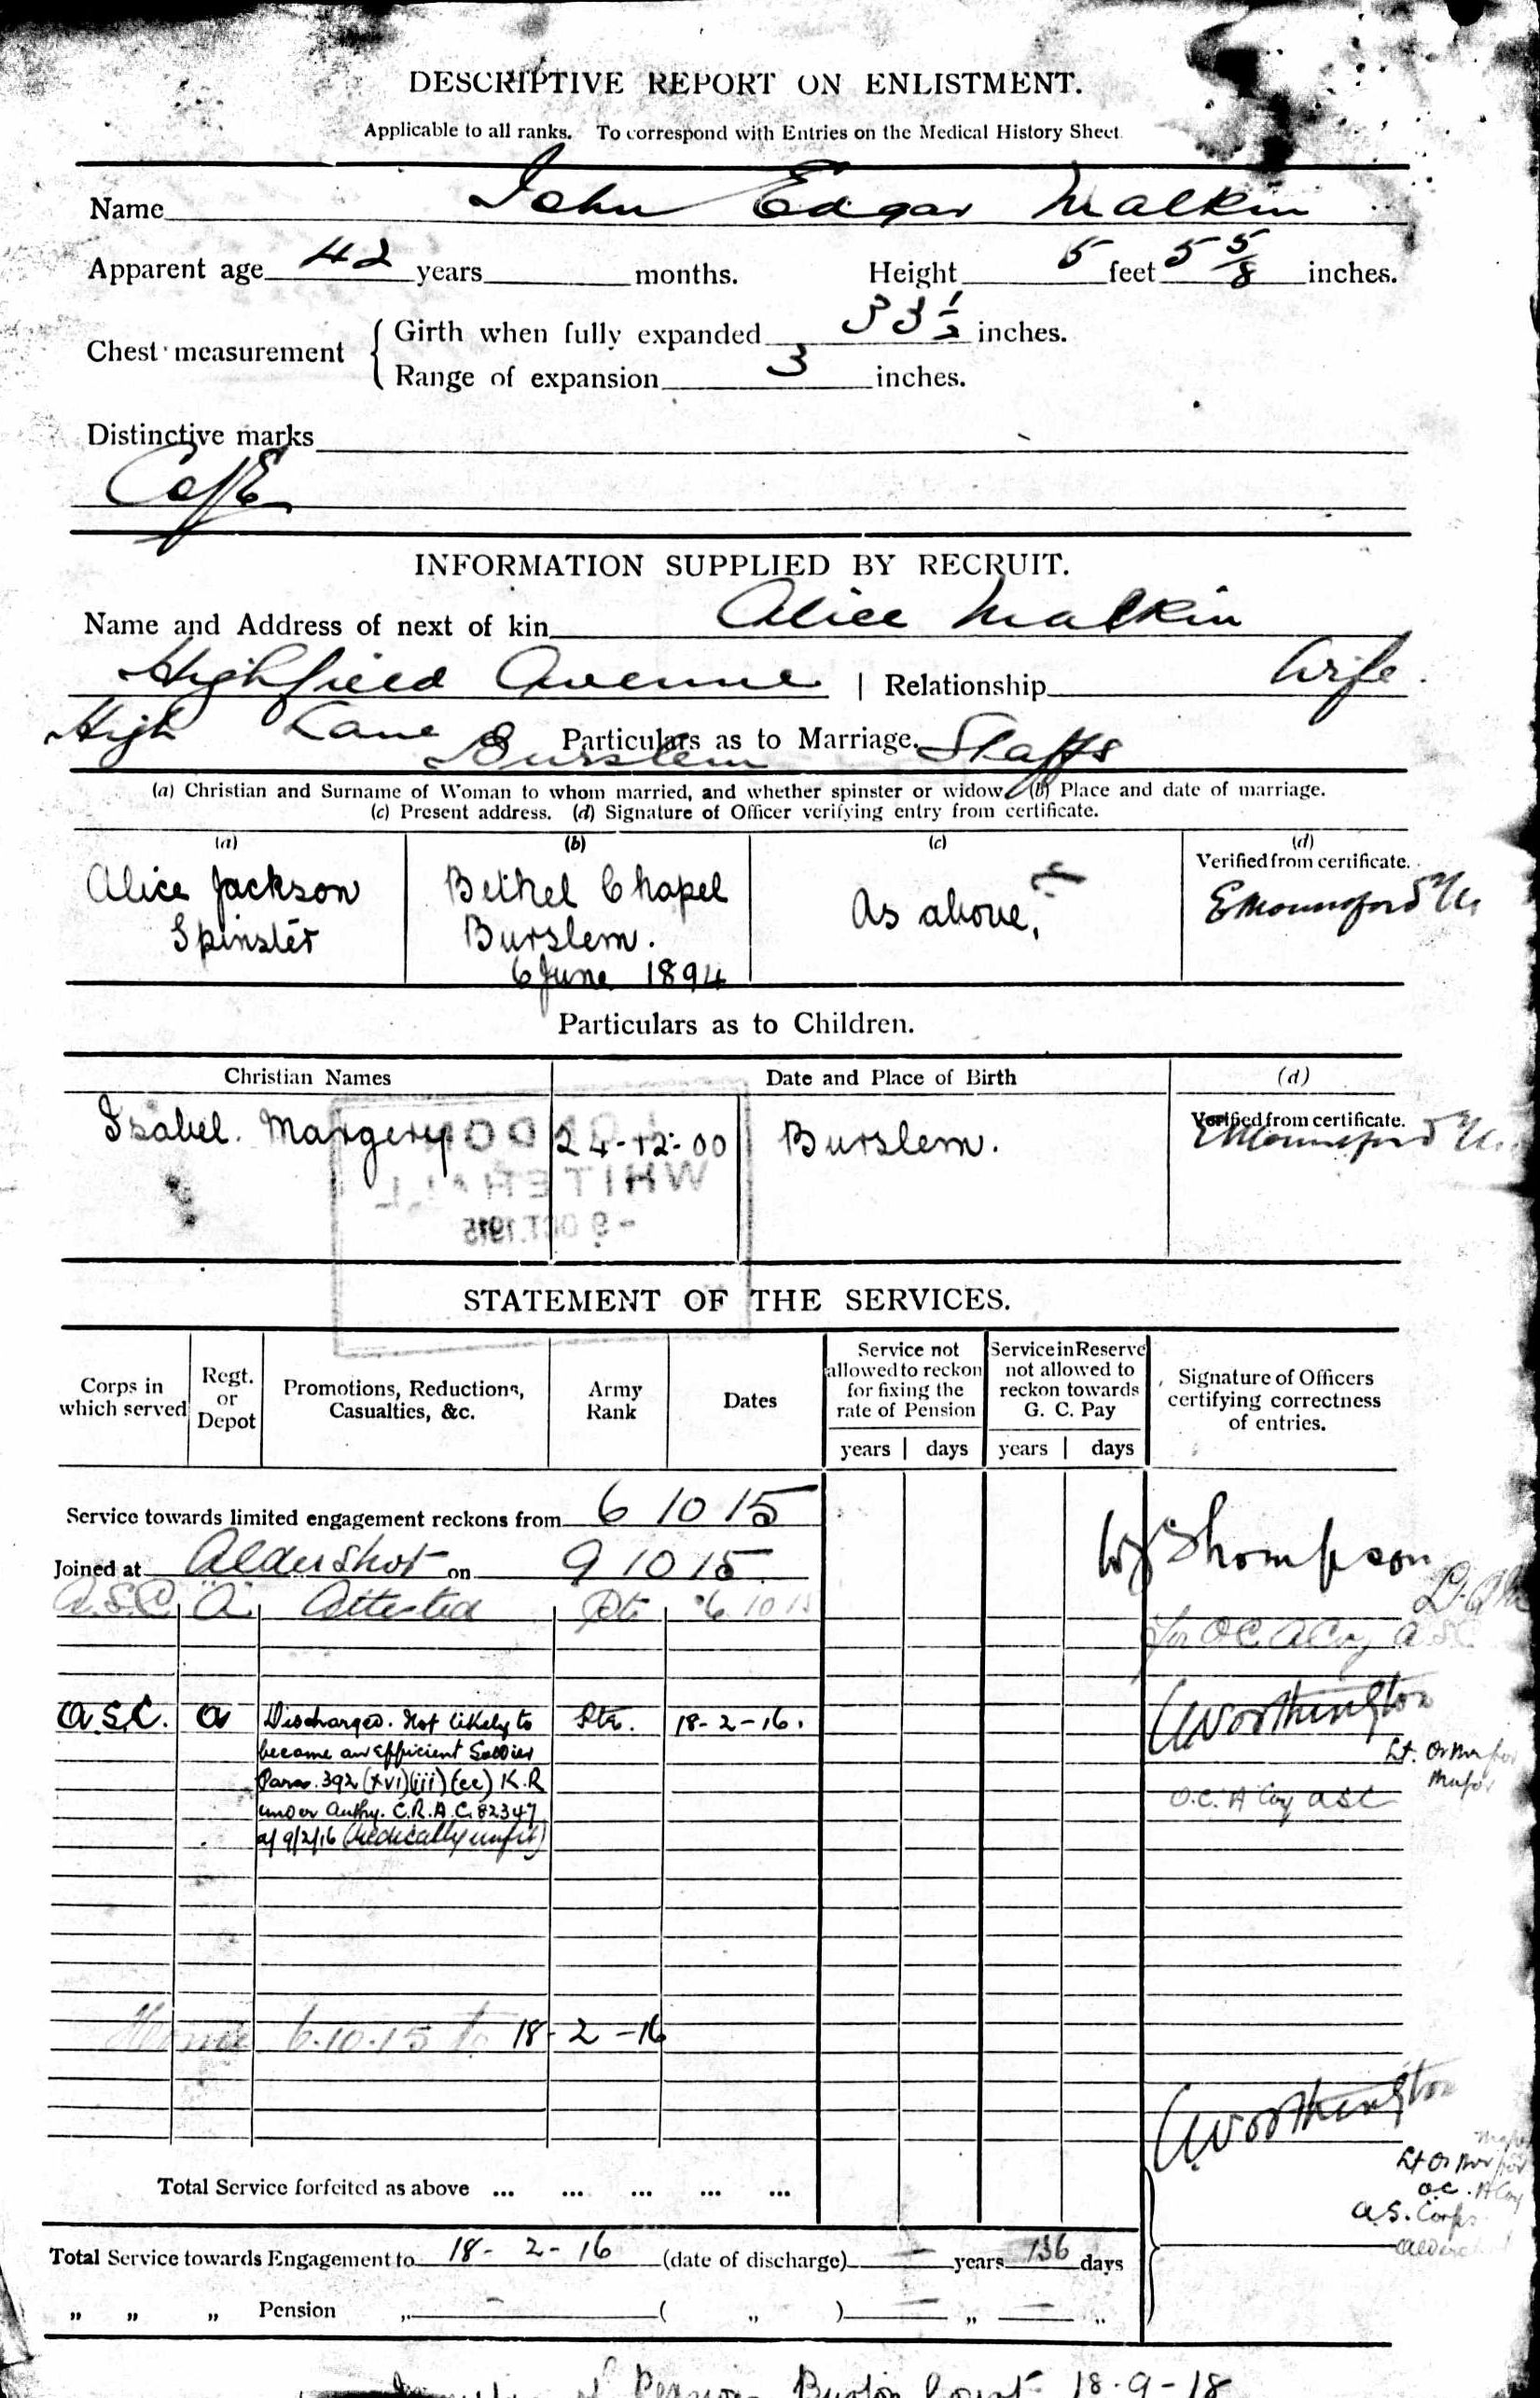 DESCRIPTIVE REPORT ON ENLISTMENT.
Applicable to all ranks. To correspond with Entries on the Medical History Sheet
Name John Edgar Malkin
Apparent age 42 years months. Height 5 feet 5 5/8 inches.
Chest measurement { Girth when fully expanded 33 1/2 inches.
Range of expansion 3 inches.
Distinctive marks
INFORMATION SUPPLIED BY RECRUIT.
Name and Address of next of kin Alice Malkin
Highfield Avenue | Relationship Wife.
High Lane Burslem Staffs
Particulars as to Marriage.
(a) Christian and Surname of Woman to whom married, and whether spinster or widow. (b) Place and date of marriage.
(c) Present address. (d) Signature of Officer verifying entry from certificate.
(a) (b) (c) (d)
Verified from certificate.
Alice Jackson Bethel Chapel As above.
Spinster Burslem.
6 June 1894
Particulars as to Children.
Christian Names Date and Place of Birth (d)
Verified from certificate.
Isabel. Margery 24-12-00 Burslem.
LONDON
WHITEHALL
- 9 OCT. 1915
STATEMENT OF THE SERVICES.
Corps in which served Regt. or Depot Promotions, Reductions, Casualties, &c. Army Rank Dates Service not allowed to reckon for fixing the rate of Pension Service in Reserve not allowed to reckon towards G. C. Pay Signature of Officers certifying correctness of entries.
years | days years | days
Service towards limited engagement reckons from 6 10 15
Joined at Aldershot on 9 10 15 Thompson
A.S.C. A Attested Pte 6 10 15
for O C A Coy A.S.C.
A.S.C. A Discharged. Not likely to Pte. 18-2-16. Worthington
become an efficient Soldier
Para. 392 (xvi)(iii)(cc) K.R
under Authy. C.R.A.C. 82347
d/ 9/2/16 (Medically unfit)
O.C. A Coy ASC
Home 6.10.15 to 18-2-16
Worthington
O.C. A Coy
A.S. Corps
Total Service forfeited as above ... ... ... ... ...
Total Service towards Engagement to 18-2-16 (date of discharge) — years 136 days
„ „ „ Pension „ — ( „ ) — „ — „
of Pension 18-9-18